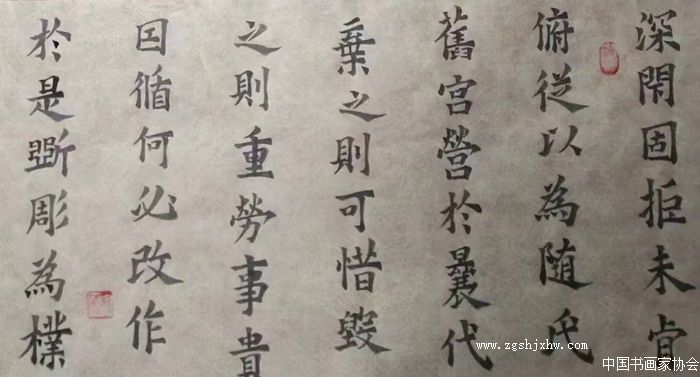 深閇固拒未肯
俯從以為随氏
舊宮營於曩代
棄之則可惜毀
之則重勞事貴
因循何必改作
於是斲彫為樸
www.zgshjxhw.com
中国书画家协会